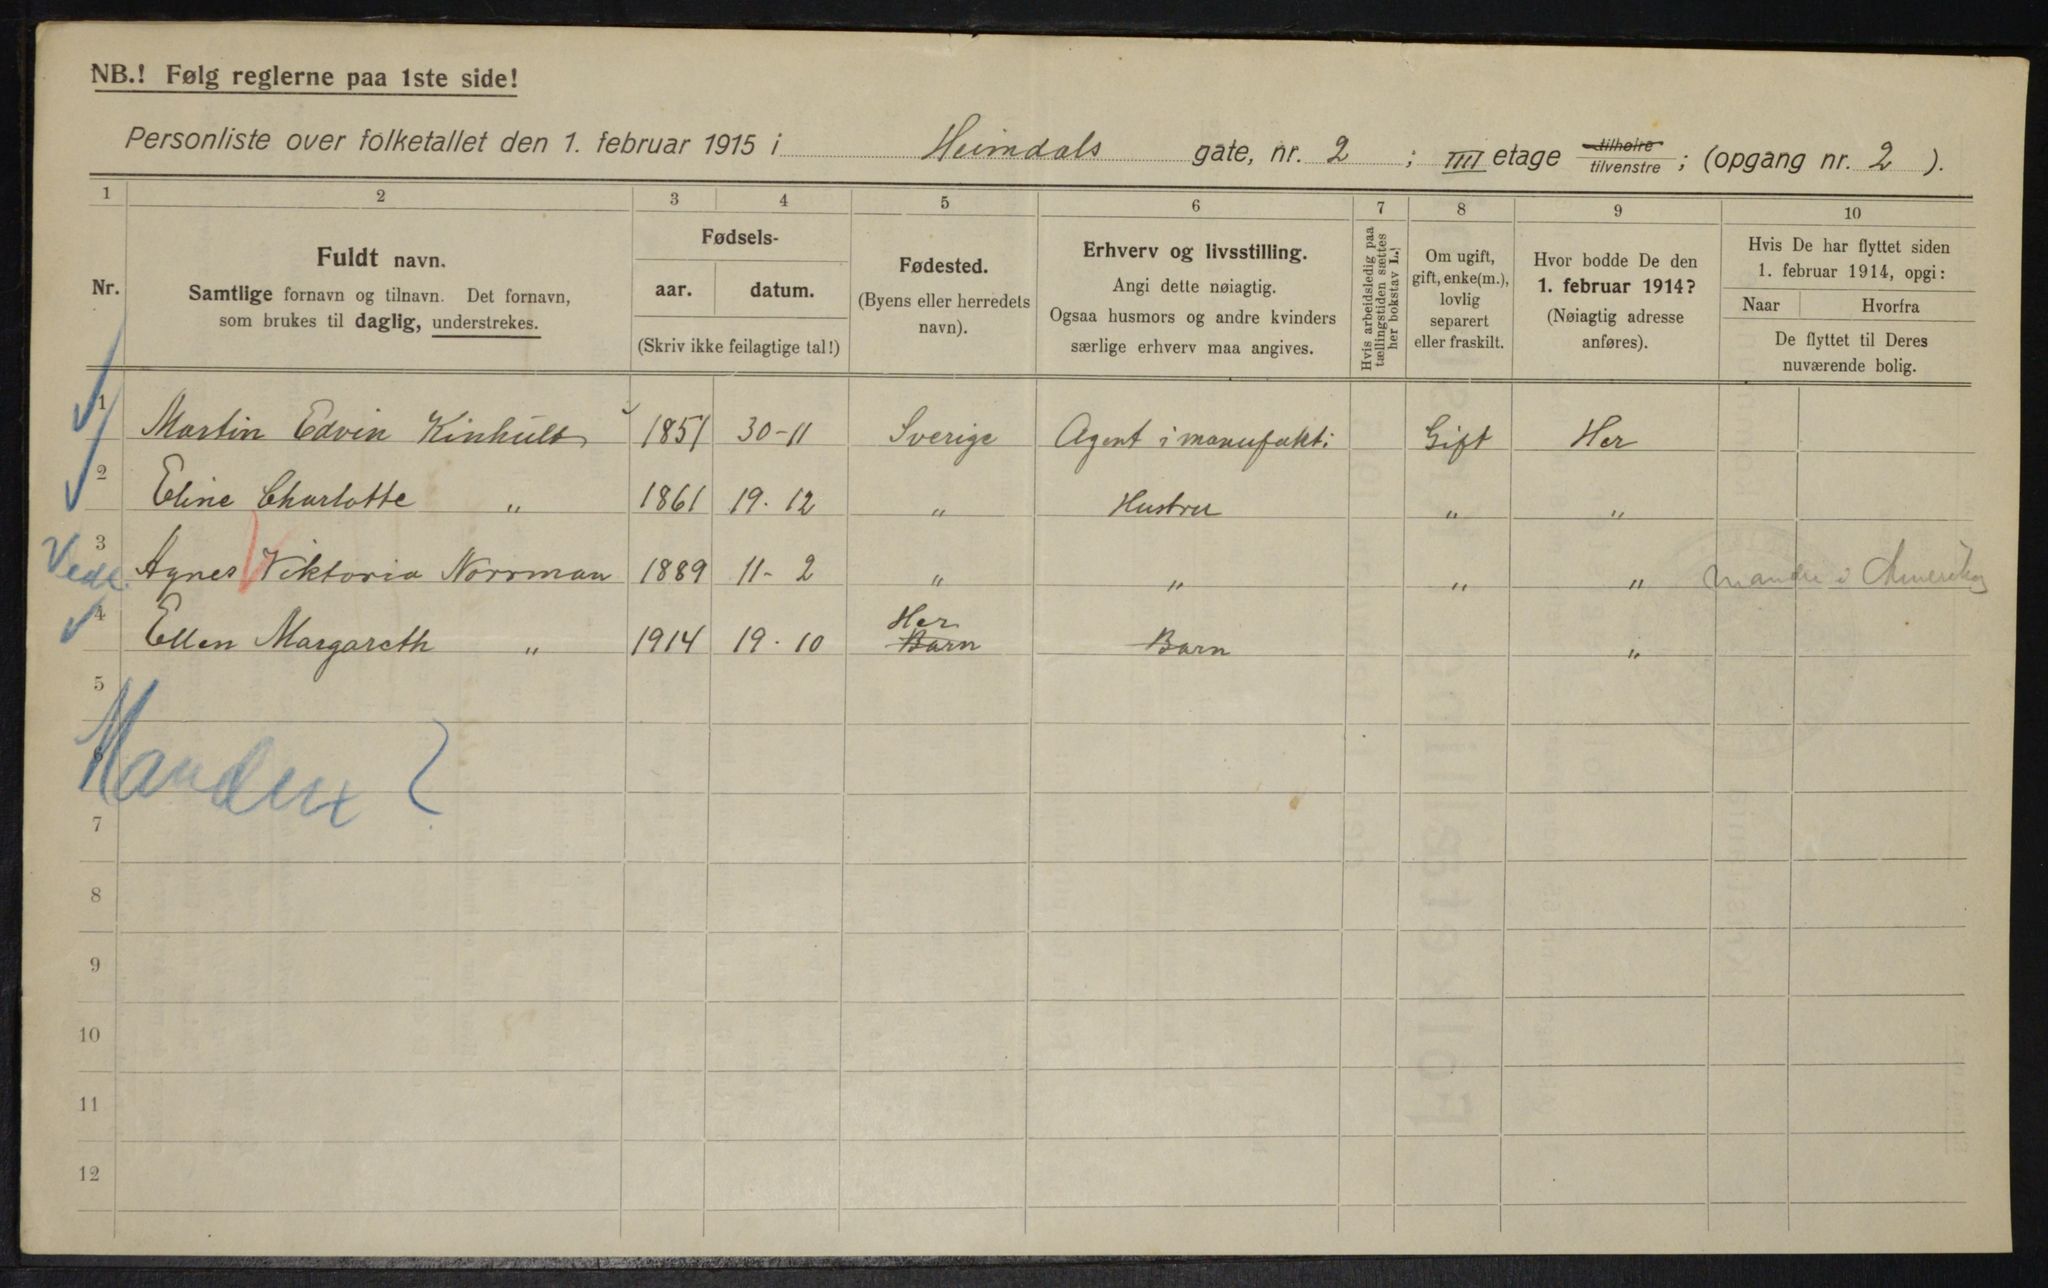 NB.! Følg reglerne paa 1ste side!
Personliste over folketallet den 1. februar 1915 i Heimdals gate, nr. 2 ; IIII etage tilhøire tilvenstre ; (opgang nr. 2 ).
1 2 3 4 5 6 7 8 9 10
Nr.
Fuldt navn.
Samtlige fornavn og tilnavn. Det fornavn,
som brukes til daglig, understrekes.
Fødsels-
aar. datum.
(Skriv ikke feilagtige tal!)
Fødested.
(Byens eller herredets
navn).
Erhverv og livsstilling.
Angi dette nøiagtig.
Ogsaa husmors og andre kvinders
særlige erhverv maa angives.
Hvis arbeidsledig paa
tællingstiden sættes
her bokstav L.
Om ugift,
gift, enke(m.),
lovlig
separert
eller fraskilt.
Hvor bodde De den
1. februar 1914?
(Nøiagtig adresse
anføres).
Hvis De har flyttet siden
1. februar 1914, opgi:
Naar Hvorfra
De flyttet til Deres
nuværende bolig.
1 Martin Edvin Kinhult 1851 30-11 Sverige Agent i manufakt: Gift Her
2 Eline Charlotte " 1861 19.12 " Hustru " "
3 Agnes Viktoria Norrman 1889 11-2 " " " " Manden i Amerika
Her
4 Ellen Margareth " 1914 19.10 Barn Barn "
5
6
Manden ?
7
8
9
10
11
12